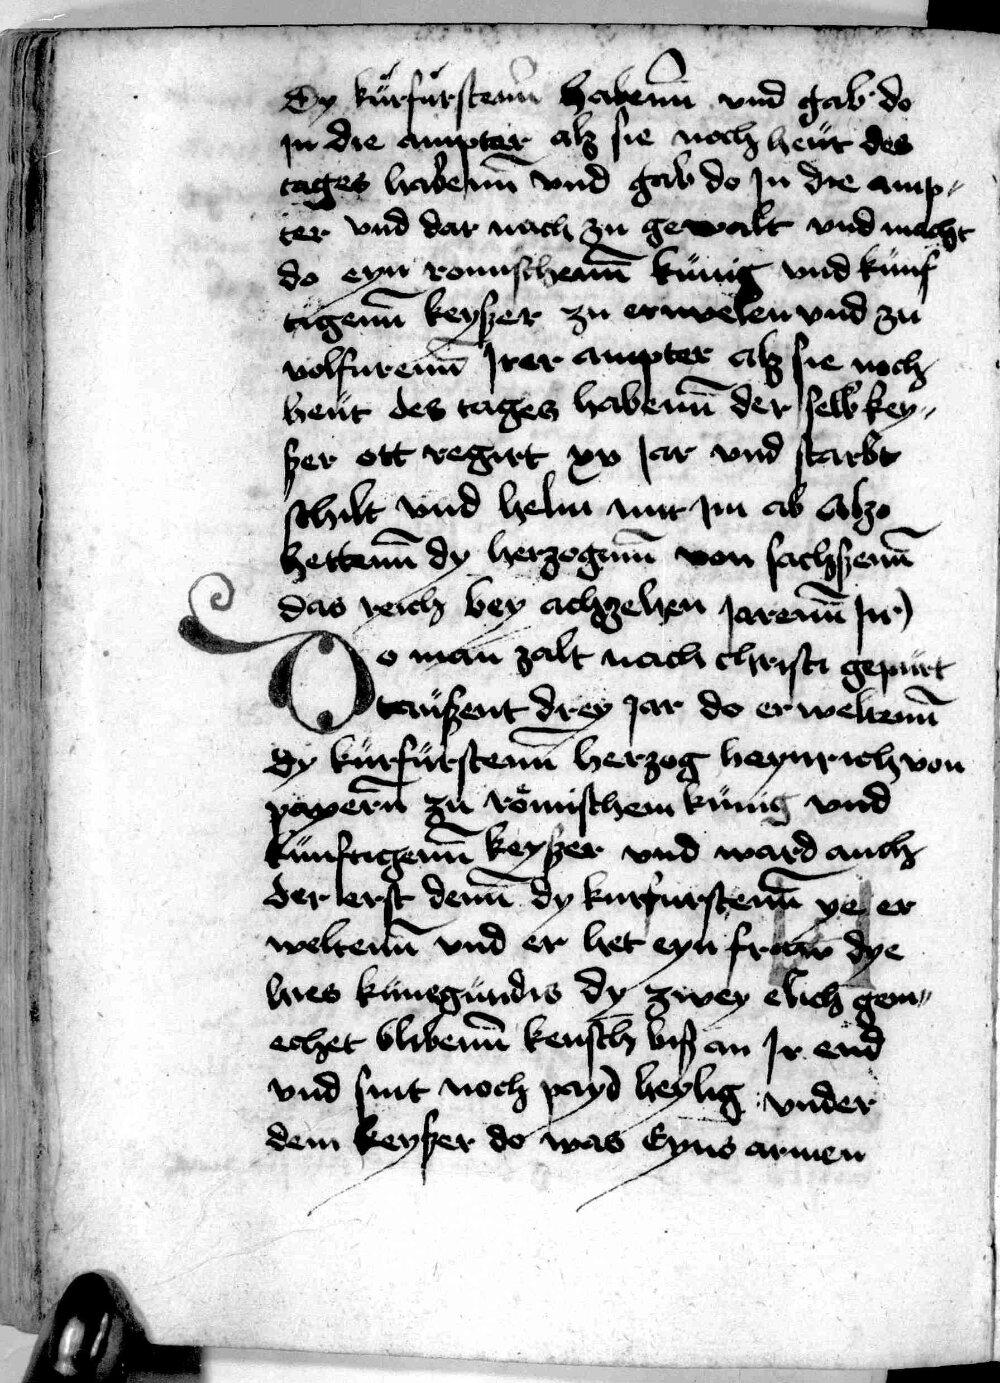 Dy kürfürstenn habenn vnd gab do
jn die ampter alß sie noch heüt des
tages habenn vnd gab do jn die amp-
ter vnd dar nach zu gewalt vnd macht
do eyn romischenn künig vnd künf
tigenn keyßer zu erwelen vnd zu
volfurenn jrer ampter alß sie noch
heüt des tages habenn der selb key-
ßer ott regirt xv jar vnd starbt
schilt vnd helm mit jm ab Alßo
hettenn dy herzogenn von sachßenn
das reich bey achzehen jarenn jn)
Do man zalt nach christi gepürt
taüßent drey jar do erweltenn
dy kürfürstenn herzog heynrich von
payern zu römischem künig vnd
künftigenn keyßer vnd ward auch
der erst denn dy kurfurstenn ye er
weltenn vnd er het eyn fraw dye
hies künegündis dy zwey elich gem-
echet blibenn keusch biß an jr end
vnd sint noch payd heylig vnder
dem keyßer do was Eyns armen